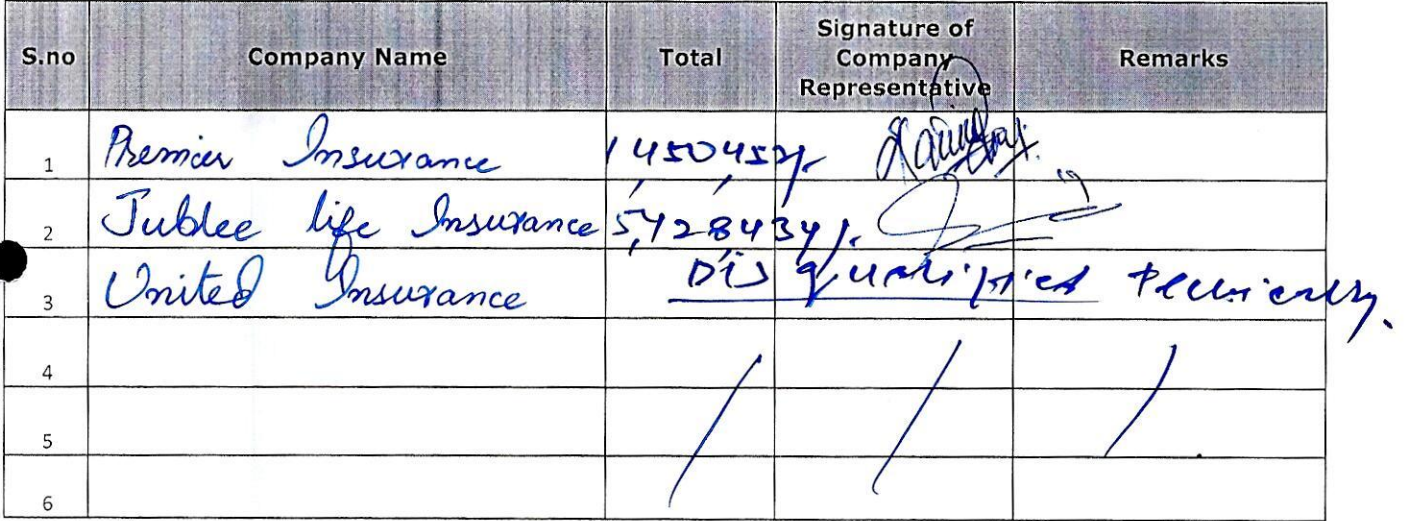 S.no Company Name Total Signature of Company Representative Remarks
1 Premier Insurance 1,450,452/-
2 Jublee life Insurance 5,428,434/-
3 United Insurance Dis qualified Technically.
4
5
6